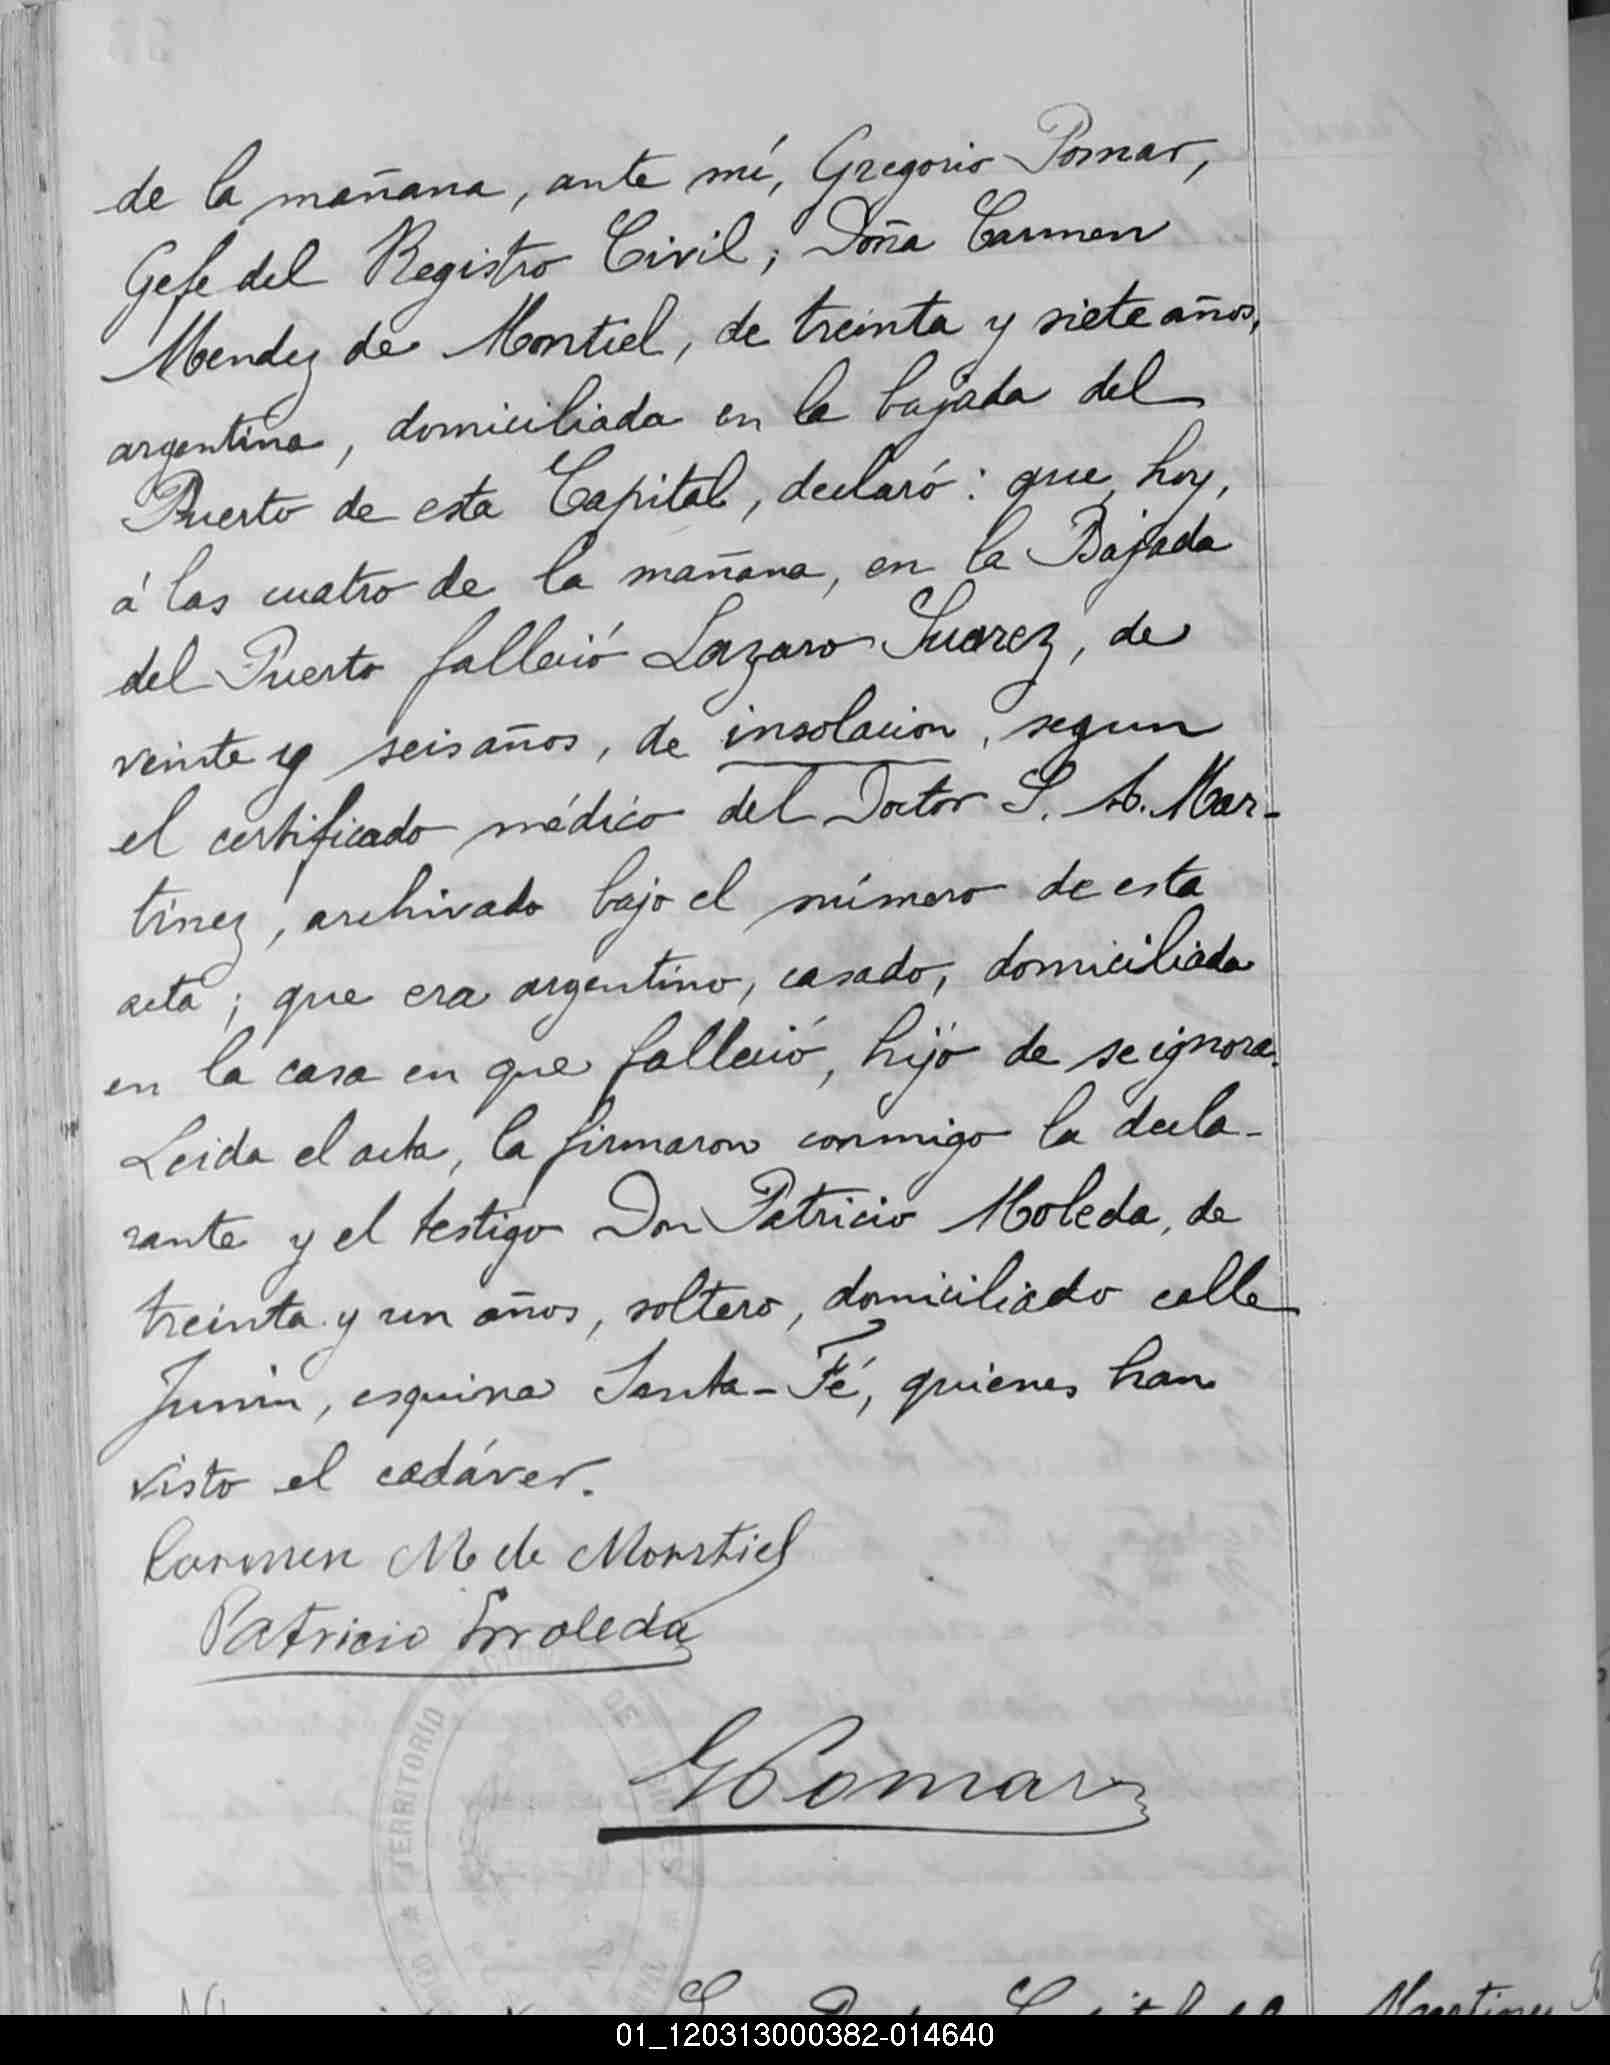 de la mañana, ante mí, Gregorio Pomar,
Gefe del Registro Civil; Doña Carmen
Mendez de Montiel, de treinta y siete años,
argentina, domiciliada en la bajada del
Puerto de esta Capital, declaró: que, hoy,
á las cuatro de la mañana, en la Bajada
del Puerto falleció Lazaro Suarez, de
veinte y seis años, de insolacion, segun
el certificado médico del Doctor S. A. Mar-
tinez, archivado bajo el número de esta
acta; que era argentino, casado, domiciliada
en la casa en que falleció, hijo de se ignora.
Leida el acta, la firmaron conmigo la decla-
rante y el testigo Don Patricio Moleda, de
treinta y un años, soltero, domiciliado calle
Junin, esquina Santa-Fé, quienes han
visto el cadáver.
Carmen M de Monstiel
Patricio Moleda
GPomar
TERRITORIO DE
Martinez
01_120313000382-014640